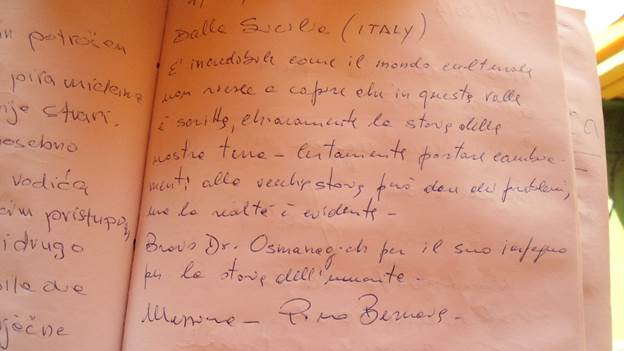 potrošen
piramidama
stvari.
osebno
vodiča
pristupo,
idrugo
Dalla Sicilia (ITALY)
E' incredibile come il mondo culturale
non riesce a capire che in questa valle
è scritta, chiaramente la storia della
nostra terra - Certamente portare cambia-
menti alla vecchia storia può dare dei problemi,
ma la realtà è evidente -
Bravo Dr. Osmanagich per il suo impegno
per la storia dell'umanità -
Messina - Pino